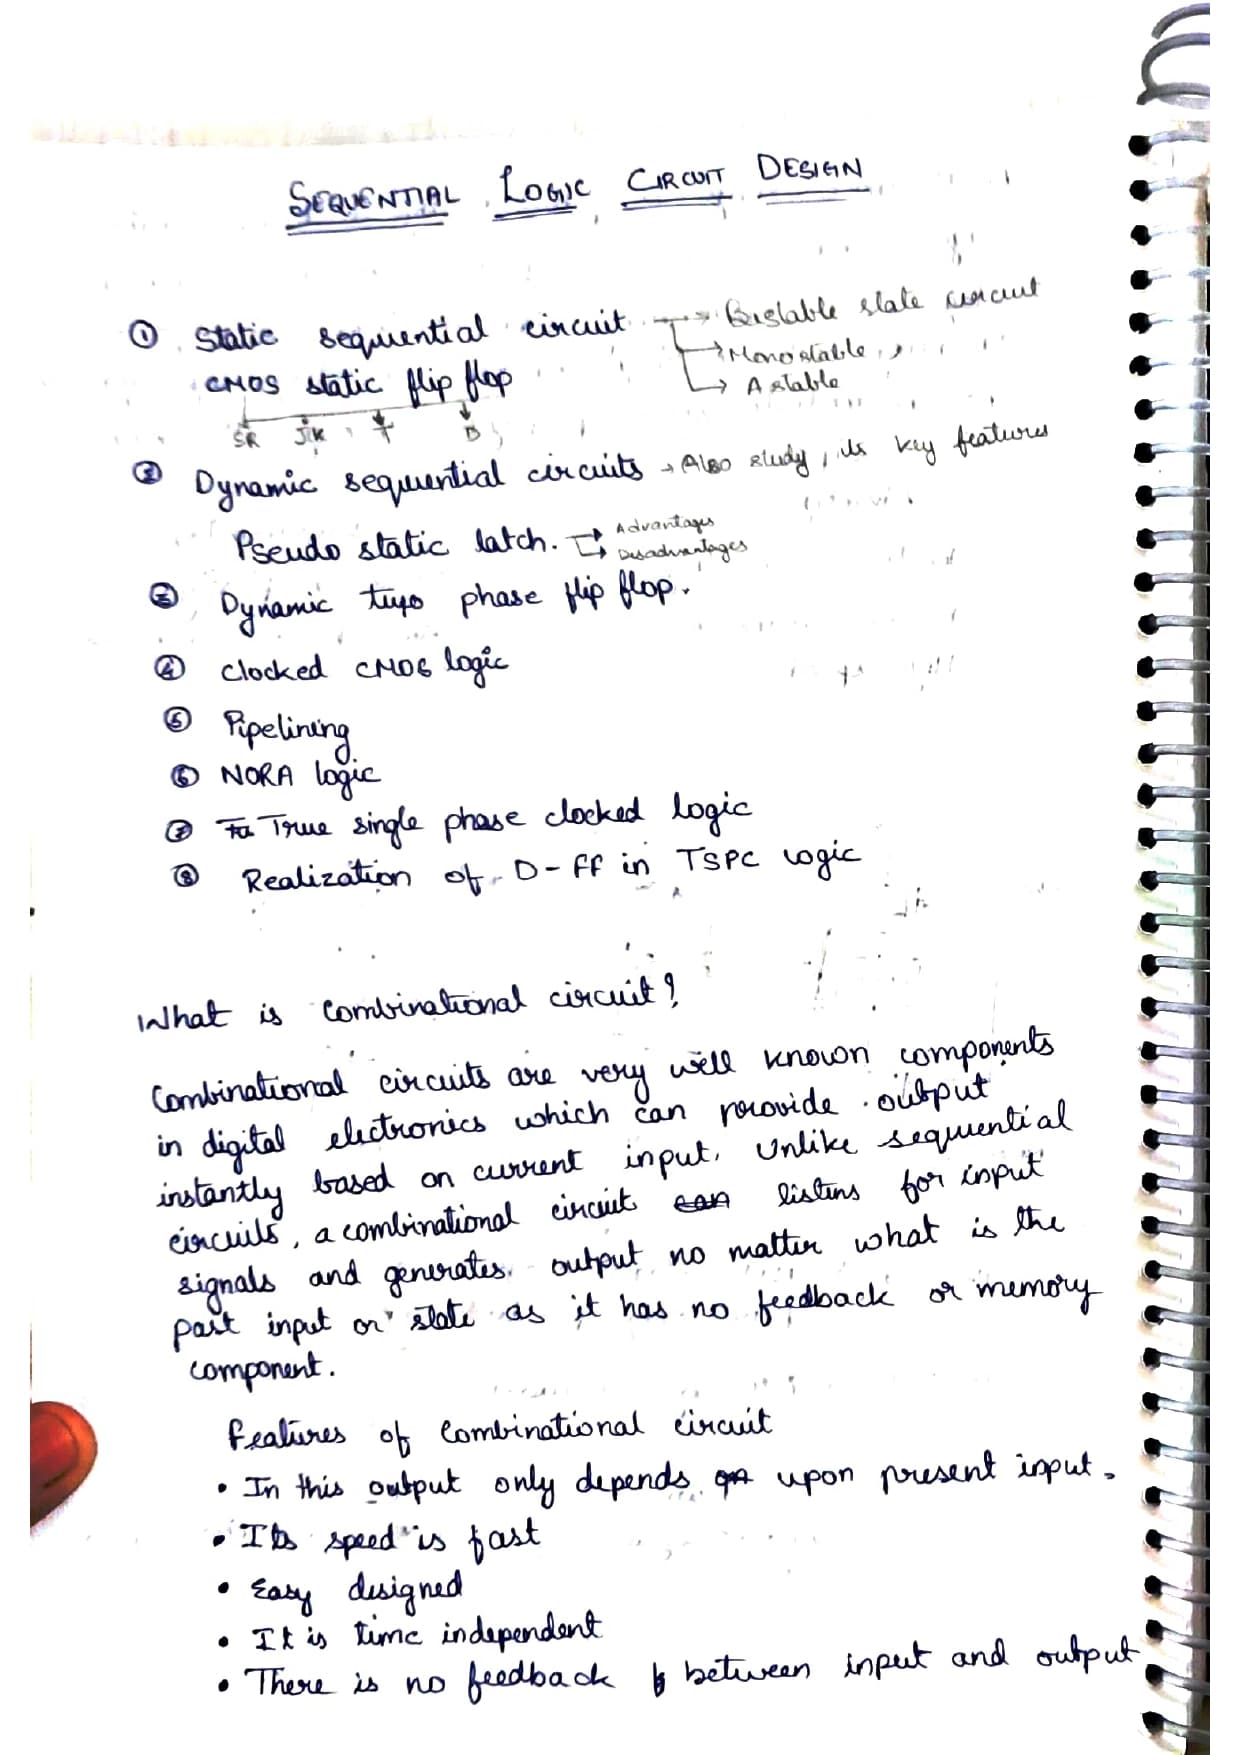 SEQUENTIAL LOGIC CIRCUIT DESIGN
① Static sequential circuit → Bistable state circuit
→ Monostable
CMOS static flip flop → Astable
SR JK T D
② Dynamic sequential circuits → Also study, its key features
Pseudo static latch. → Advantages
→ Disadvantages
③ Dynamic two phase flip flop.
④ Clocked CMOS logic
⑤ Pipelining
⑥ NORA logic
⑦ True single phase clocked logic
⑧ Realization of D-FF in TSPC logic
What is combinational circuit?
Combinational circuits are very well known components
in digital electronics which can provide output
instantly based on current input. Unlike sequential
circuits, a combinational circuit can listens for input
signals and generates output no matter what is the
past input or state as it has no feedback or memory
component.
Features of Combinational circuit
• In this output only depends on upon present input.
• Its speed is fast
• Easy designed
• It is time independent
• There is no feedback b between input and output